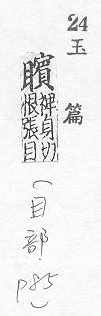 24
玉篇
矉
裨身切
恨張目
（目部．P85）